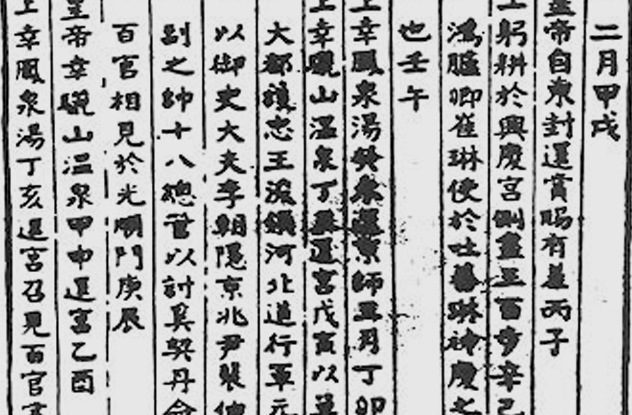 二月甲戌
皇帝自東封還賞賜有差丙子
上躬耕於興慶宮側盡三百步辛己
鴻臚卿崔琳使於吐蕃琳神慶之
也壬午
上幸鳳泉湯癸未還京師五月丁卯
上幸驪山溫泉丁亥還宮戊寅以單
大都護忠王浚領河北道行軍元
以御史大夫李朝隱京兆尹裴伷
副之帥十八總管以討奚契丹命
百官相見於光順門庚辰
皇帝幸驪山溫泉甲申還宮乙酉
上幸鳳泉湯丁亥還宮召見百官言